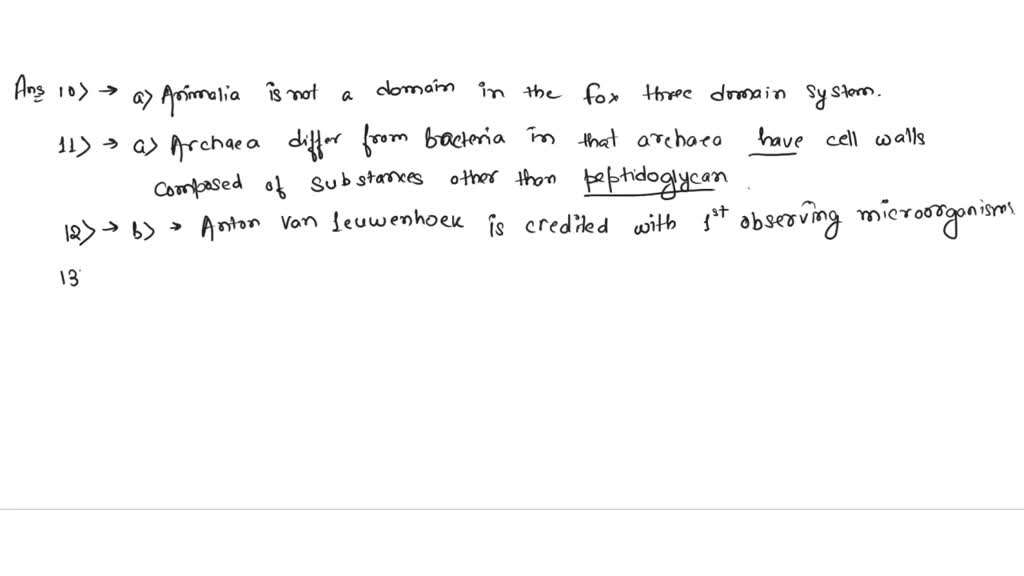 Ans 10) → a) Animalia is not a domain in the fox three domain system.
11) → a) Archaea differ from bacteria in that archaea have cell walls
composed of substances other than peptidoglycan
12) → b) → Anton van Leuwenhoek is credited with 1st observing microorganisms
13